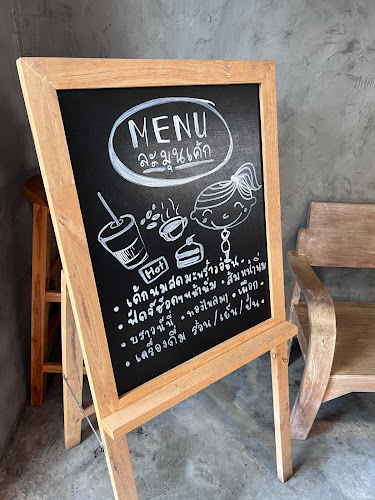 MENU
ละมุนเค้ก
Hot
• เค้กนมสดมะพร้าวอ่อน •
• ฟัดจ์ช็อคฯหน้านิ่ม • ส้มหน้านิ่ม
• บราวนี่ • ทองไพลิน • เผือก •
• เครื่องดื่ม ร้อน/เย็น/ปั่น •